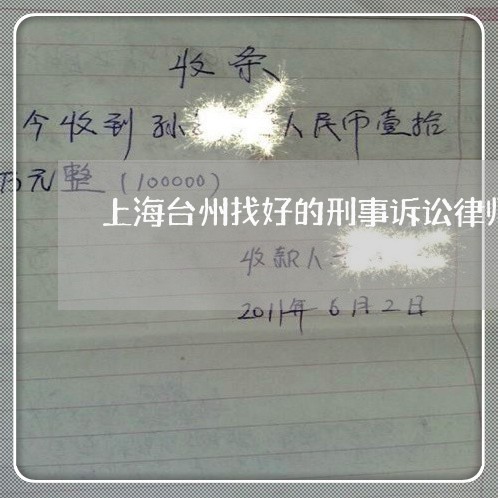 收条
今收到孙 人民币壹拾
万元整（100000）
上海台州找好的刑事诉讼律师
收款人
2011年6月2日